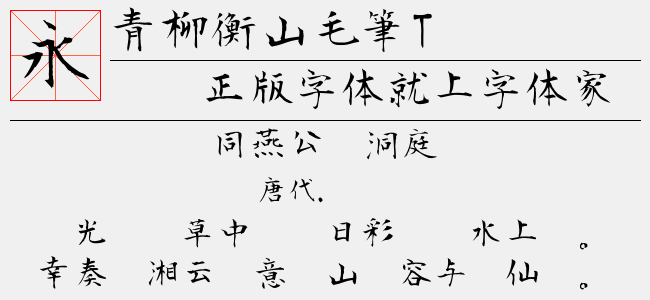 永
青柳衡山毛筆T
正版字体就上字体家
同燕公 洞庭
唐代.
光 草中 日彩 水上 。
幸奏 湘云 意 山 容与 仙 。